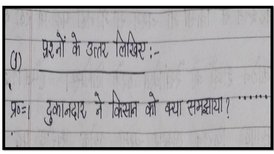 (1) प्रश्नों के उत्तर लिखिए :-
प्र०=1 दुकानदार ने किसान को क्या समझाया? ........